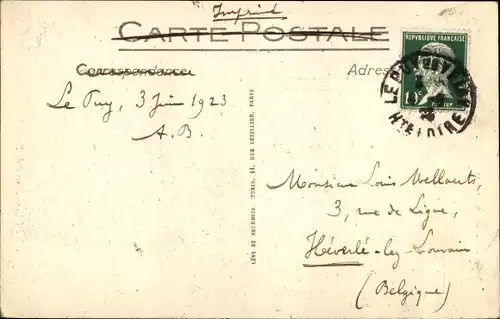 Imprimé
CARTE POSTALE
Correspondance
Adres
Le Puy, 3 Juin 1923
A.B.
RÉPUBLIQUE FRANÇAISE
HTE LOIRE
LÉVY ET NEURDEIN RÉUNIS, 44, RUE LETELLIER, PARIS
Monsieur Louis Mellaerts,
3, rue de Ligne,
Héverlé-lez-Louvain
(Belgique)